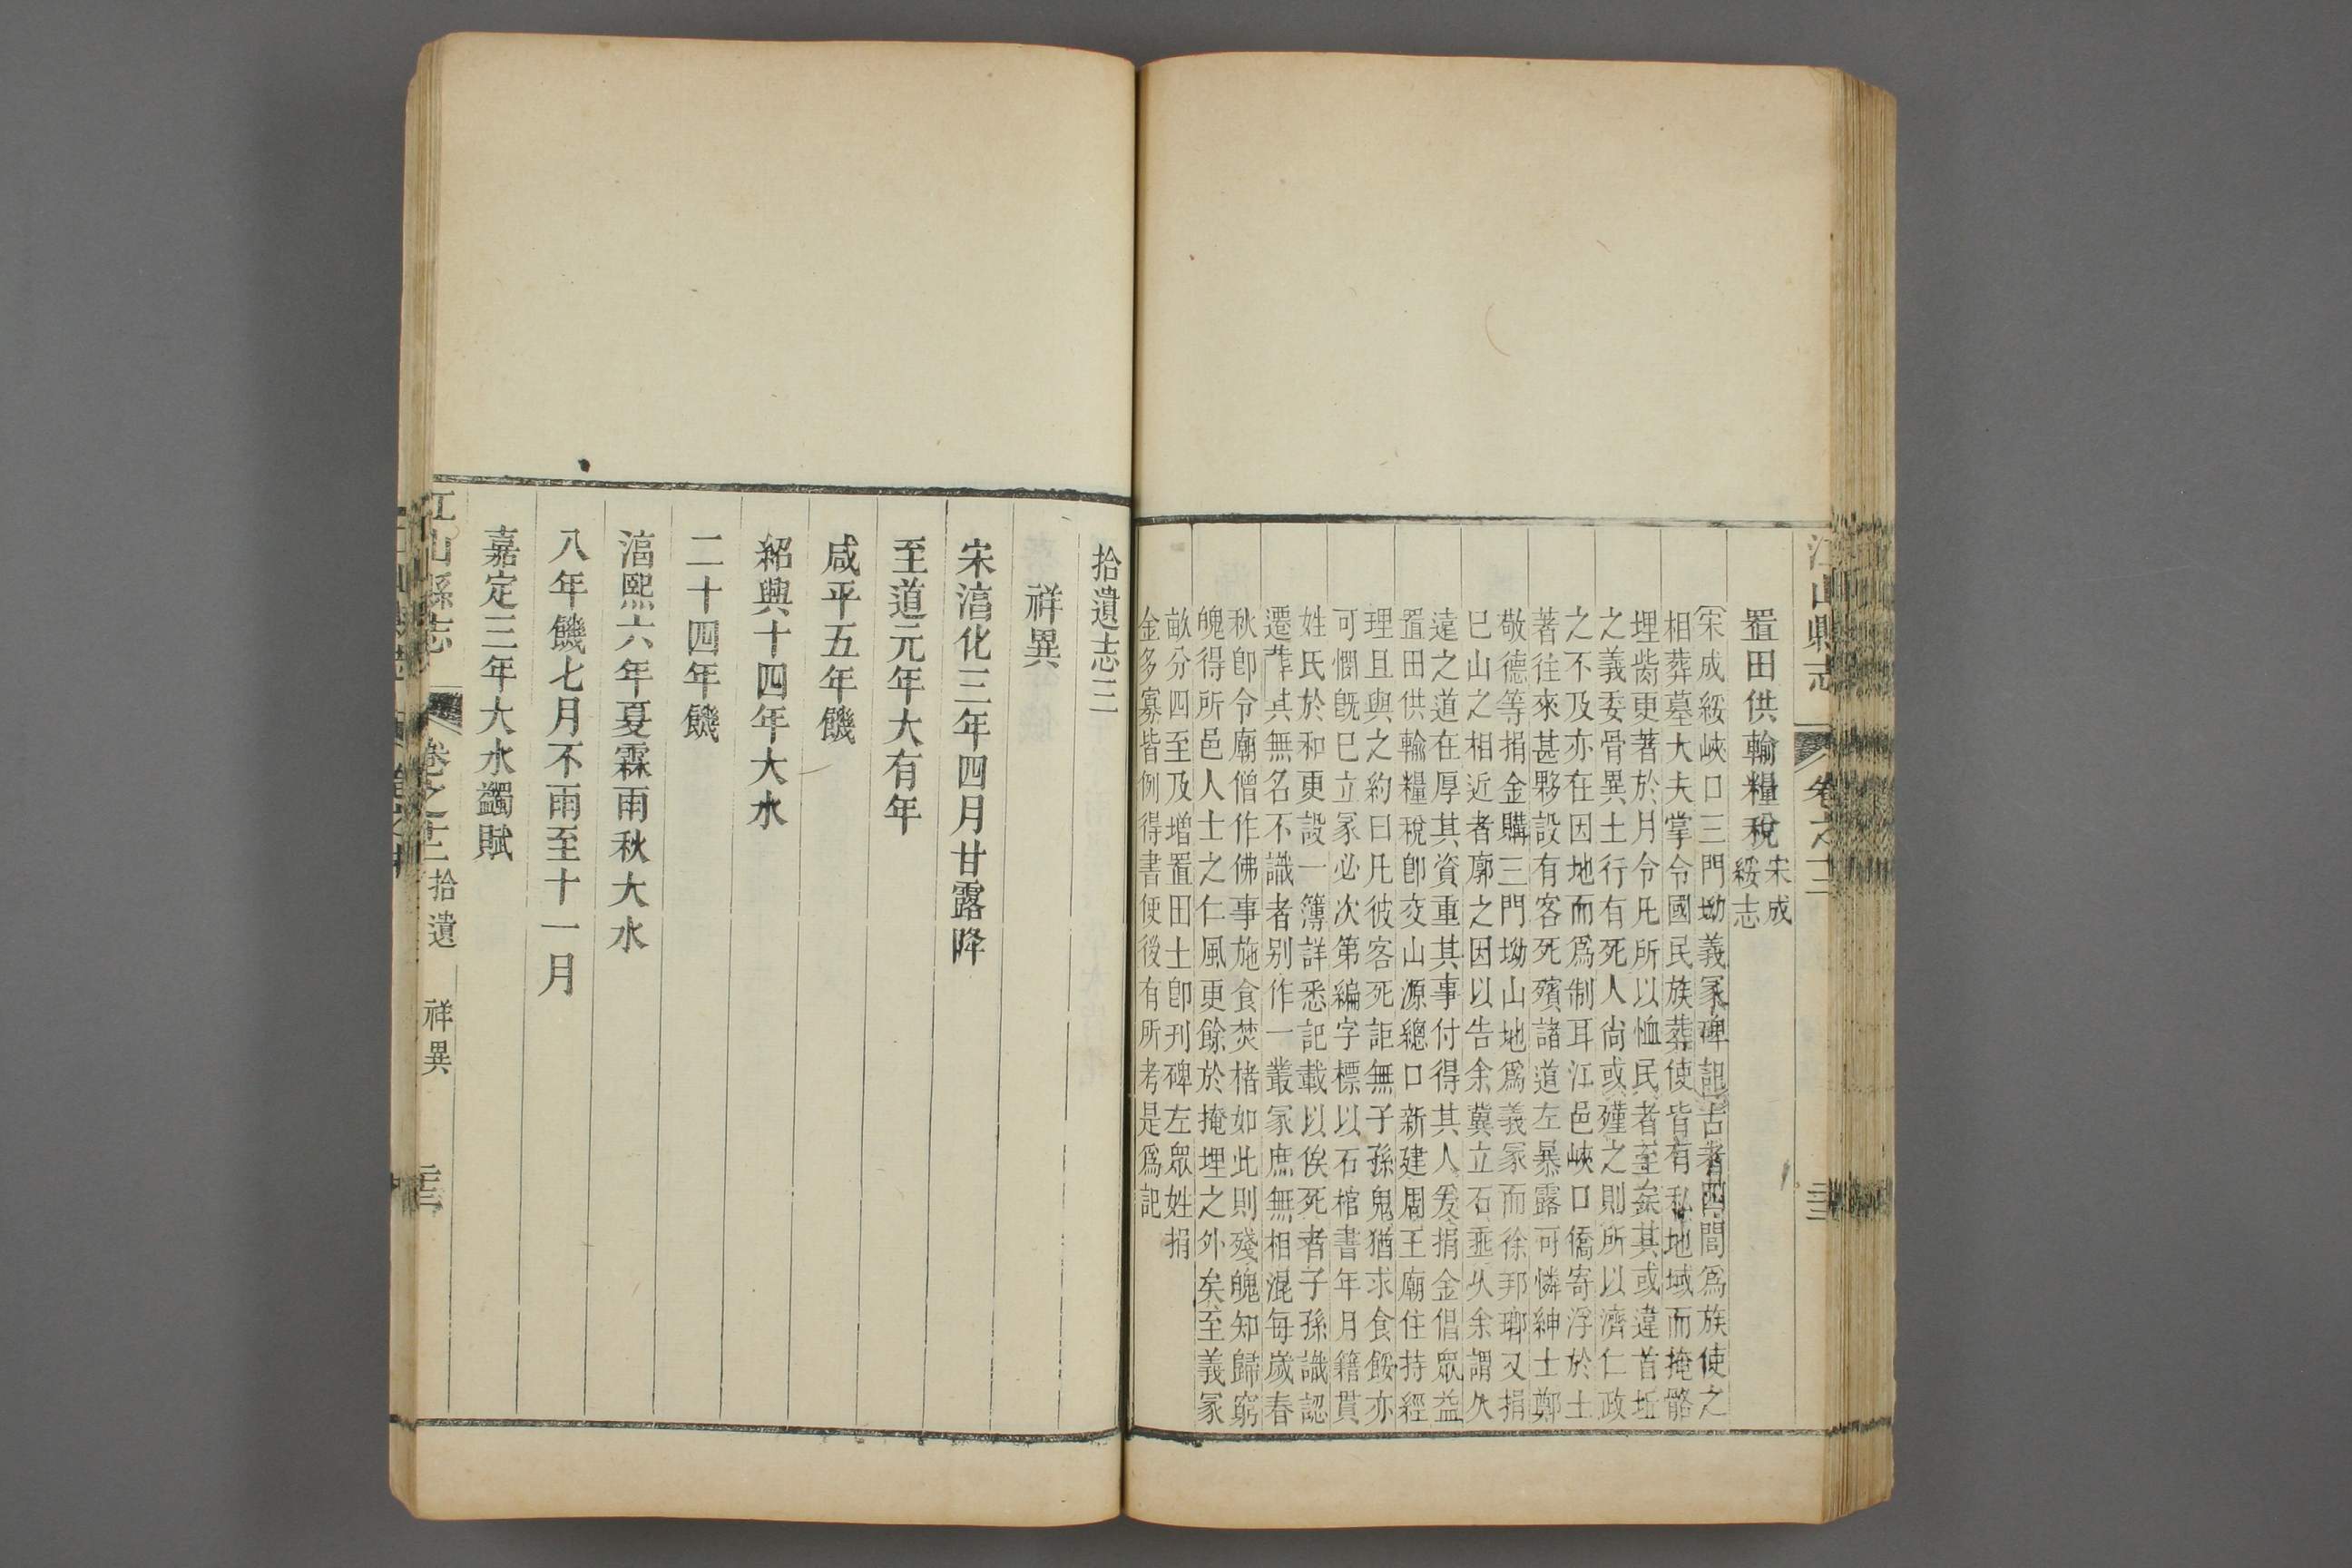 江山縣志
卷之十二
置田供輸糧稅宋成
綏志
宋成綏峽口三門坳義冢碑記古者四閭爲族使之
相葬墓大夫掌令國民族葬使皆有私地域而掩骼
埋胔更著於月令凡所以恤民者至矣其或違首坵
之義委骨異土行有死人尚或殣之則所以濟仁政
之不及亦在因地而爲制耳江邑峽口僑寄浮於土
著往來甚夥設有客死殯諸道左暴露可憐紳士鄭
敬德等捐金購三門坳山地爲義冢而徐邦瑯又捐
已山之相近者廓之因以告余冀立石垂久余謂久
遠之道在厚其資重其事付得其人爰捐金倡眾益
置田供輸糧稅卽交山源總口新建周王廟住持經
理且與之約曰凡彼客死詎無子孫鬼猶求食餒亦
可憫旣已立冢必次第編字標以石棺書年月籍貫
姓氏於和更設一簿詳悉記載以俟死者子孫識認
遷葬其無名不識者别作一叢冢庶無相混每歲春
秋卽令廟僧作佛事施食焚楮如此則殘魄知歸窮
魄得所邑人士之仁風更餘於掩埋之外矣至義冢
畝分四至及增置田土卽刊碑左眾姓捐
金多寡皆例得書便後有所考是爲記
拾遺志三
祥異
宋湻化三年四月甘露降
至道元年大有年
咸平五年饑
紹興十四年大水
二十四年饑
湻熙六年夏霖雨秋大水
八年饑七月不雨至十一月
嘉定三年大水蠲賦
江山縣志
卷之十二拾遺 祥異